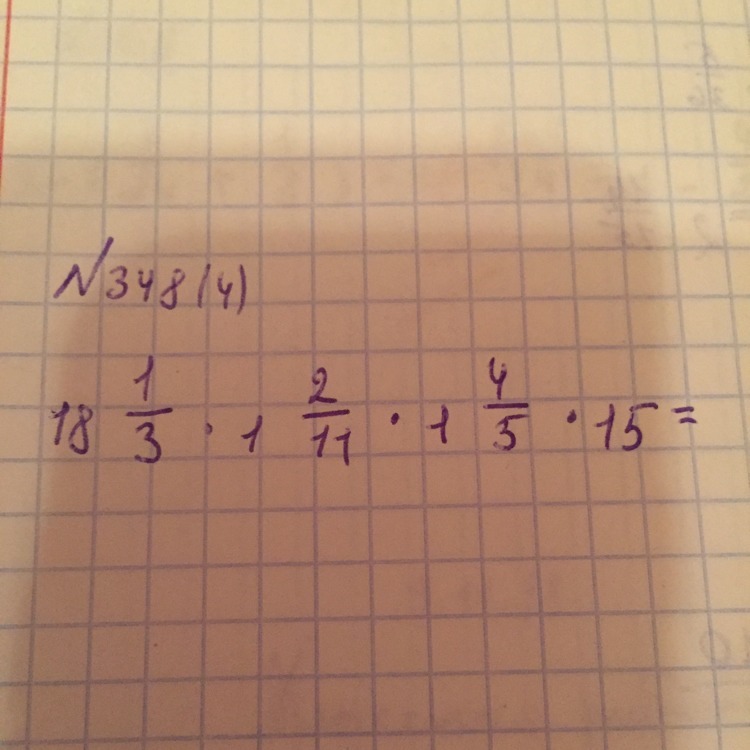 N348(4)
18 1/3 · 1 2/11 · 1 4/5 · 15 =